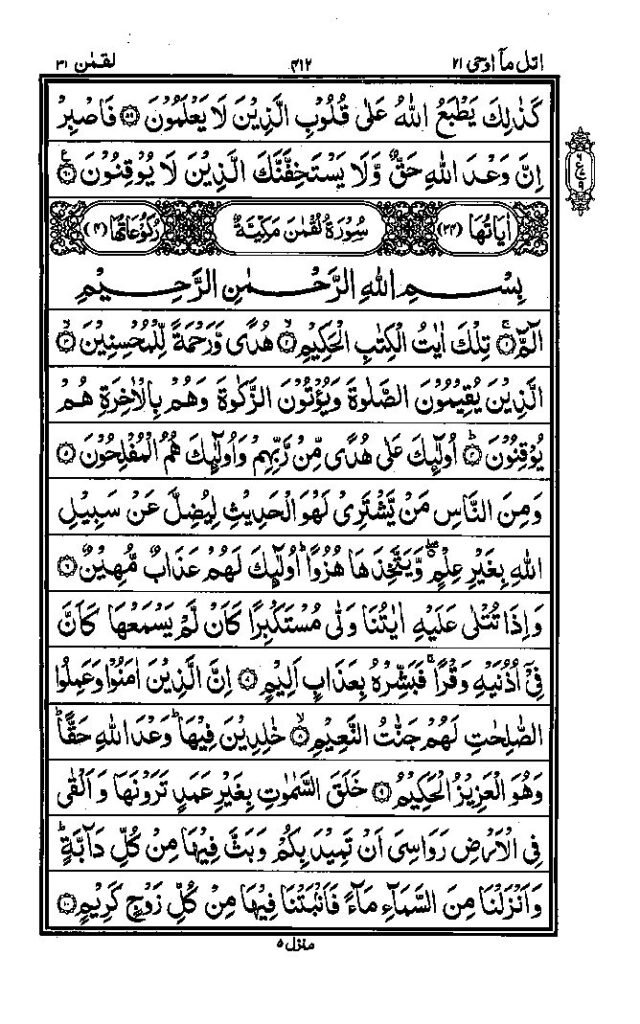 اتل مآ اوحی ۲۱ ۴۱۲ لقمٰن ۳۱
كَذٰلِكَ يَطْبَعُ اللّٰهُ عَلٰى قُلُوْبِ الَّذِيْنَ لَا يَعْلَمُوْنَ ۵۹ فَاصْبِرْ
اِنَّ وَعْدَ اللّٰهِ حَقٌّ وَّلَا يَسْتَخِفَّنَّكَ الَّذِيْنَ لَا يُوْقِنُوْنَ ۶۰
اٰيَاتُهَا (۳۴) سُوْرَةُ لُقْمٰنَ مَكِّيَّةٌ رُكُوْعَاتُهَا (۴)
بِسْمِ اللّٰهِ الرَّحْمٰنِ الرَّحِيْمِ
الٓمّٓ ۱ تِلْكَ اٰيٰتُ الْكِتٰبِ الْحَكِيْمِ ۲ هُدًى وَّرَحْمَةً لِّلْمُحْسِنِيْنَ ۳
الَّذِيْنَ يُقِيْمُوْنَ الصَّلٰوةَ وَيُؤْتُوْنَ الزَّكٰوةَ وَهُمْ بِالْاٰخِرَةِ هُمْ
يُوْقِنُوْنَ ۴ اُولٰٓئِكَ عَلٰى هُدًى مِّنْ رَّبِّهِمْ وَاُولٰٓئِكَ هُمُ الْمُفْلِحُوْنَ ۵
وَمِنَ النَّاسِ مَنْ يَّشْتَرِىْ لَهْوَ الْحَدِيْثِ لِيُضِلَّ عَنْ سَبِيْلِ
اللّٰهِ بِغَيْرِ عِلْمٍ وَّيَتَّخِذَهَا هُزُوًا ؕ اُولٰٓئِكَ لَهُمْ عَذَابٌ مُّهِيْنٌ ۶
وَاِذَا تُتْلٰى عَلَيْهِ اٰيٰتُنَا وَلّٰى مُسْتَكْبِرًا كَاَنْ لَّمْ يَسْمَعْهَا كَاَنَّ
فِىْٓ اُذُنَيْهِ وَقْرًا ۚ فَبَشِّرْهُ بِعَذَابٍ اَلِيْمٍ ۷ اِنَّ الَّذِيْنَ اٰمَنُوْا وَعَمِلُوا
الصّٰلِحٰتِ لَهُمْ جَنّٰتُ النَّعِيْمِ ۸ خٰلِدِيْنَ فِيْهَا ؕ وَعْدَ اللّٰهِ حَقًّا ؕ
وَهُوَ الْعَزِيْزُ الْحَكِيْمُ ۹ خَلَقَ السَّمٰوٰتِ بِغَيْرِ عَمَدٍ تَرَوْنَهَا وَاَلْقٰى
فِى الْاَرْضِ رَوَاسِىَ اَنْ تَمِيْدَ بِكُمْ وَبَثَّ فِيْهَا مِنْ كُلِّ دَآبَّةٍ ؕ
وَاَنْزَلْنَا مِنَ السَّمَآءِ مَآءً فَاَنْۢبَتْنَا فِيْهَا مِنْ كُلِّ زَوْجٍ كَرِيْمٍ ۱۰
منزل ۵